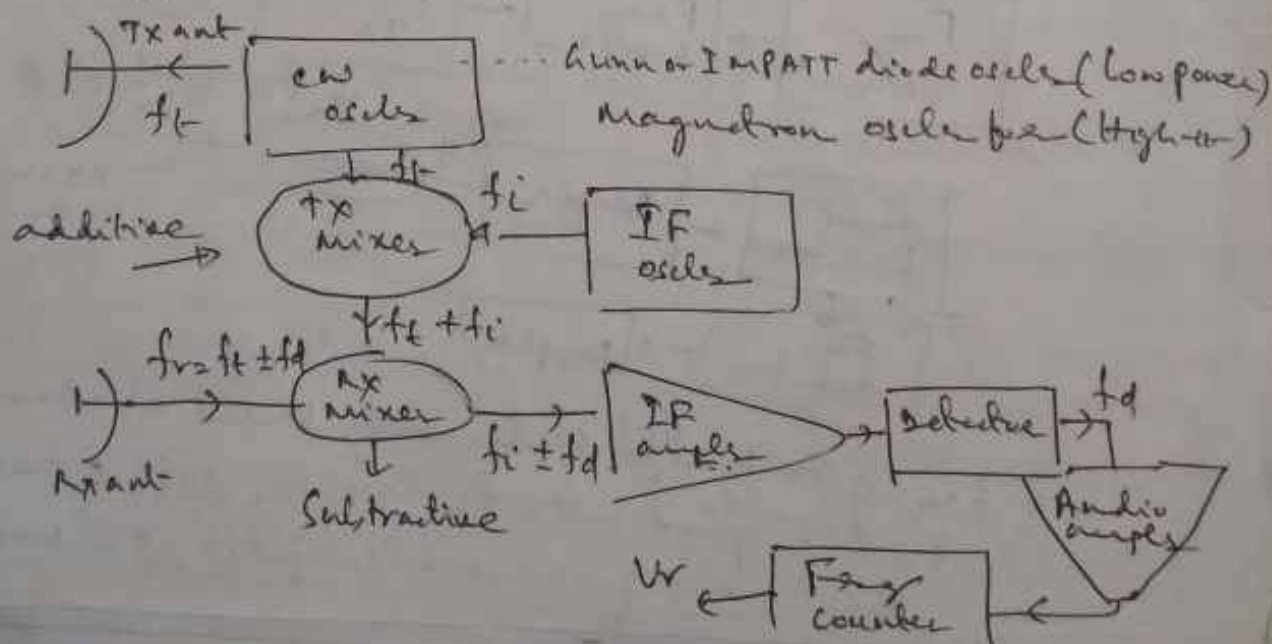 Tx ant
ft
CW
osclr
.... Gunn or IMPATT diode osclr (Low power)
Magnetron osclr for (High -"-)
ft
additive
Tx
mixer
fi
IF
osclr
ft + fi
fr = ft ± fd
Rx ant
Rx
mixer
Subtractive
fi ± fd
IF
amplr
Detector
fd
Audio
amplr
Freq
Counter
Vr